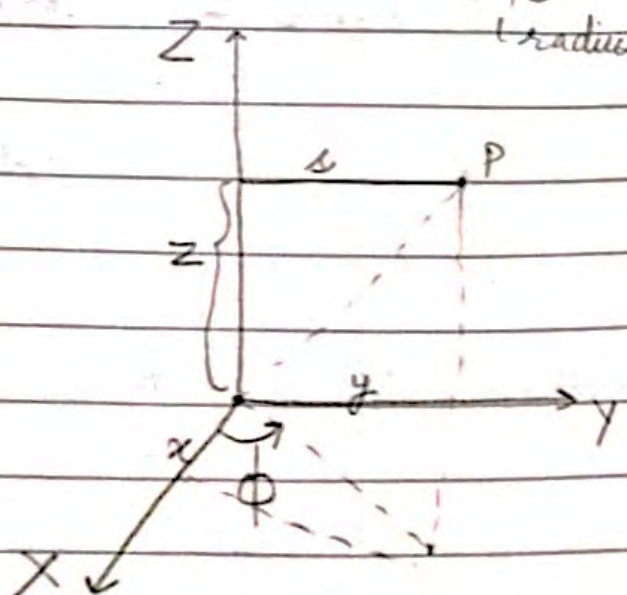 (radius
Z
s P
z
y
Y
x
Φ
X